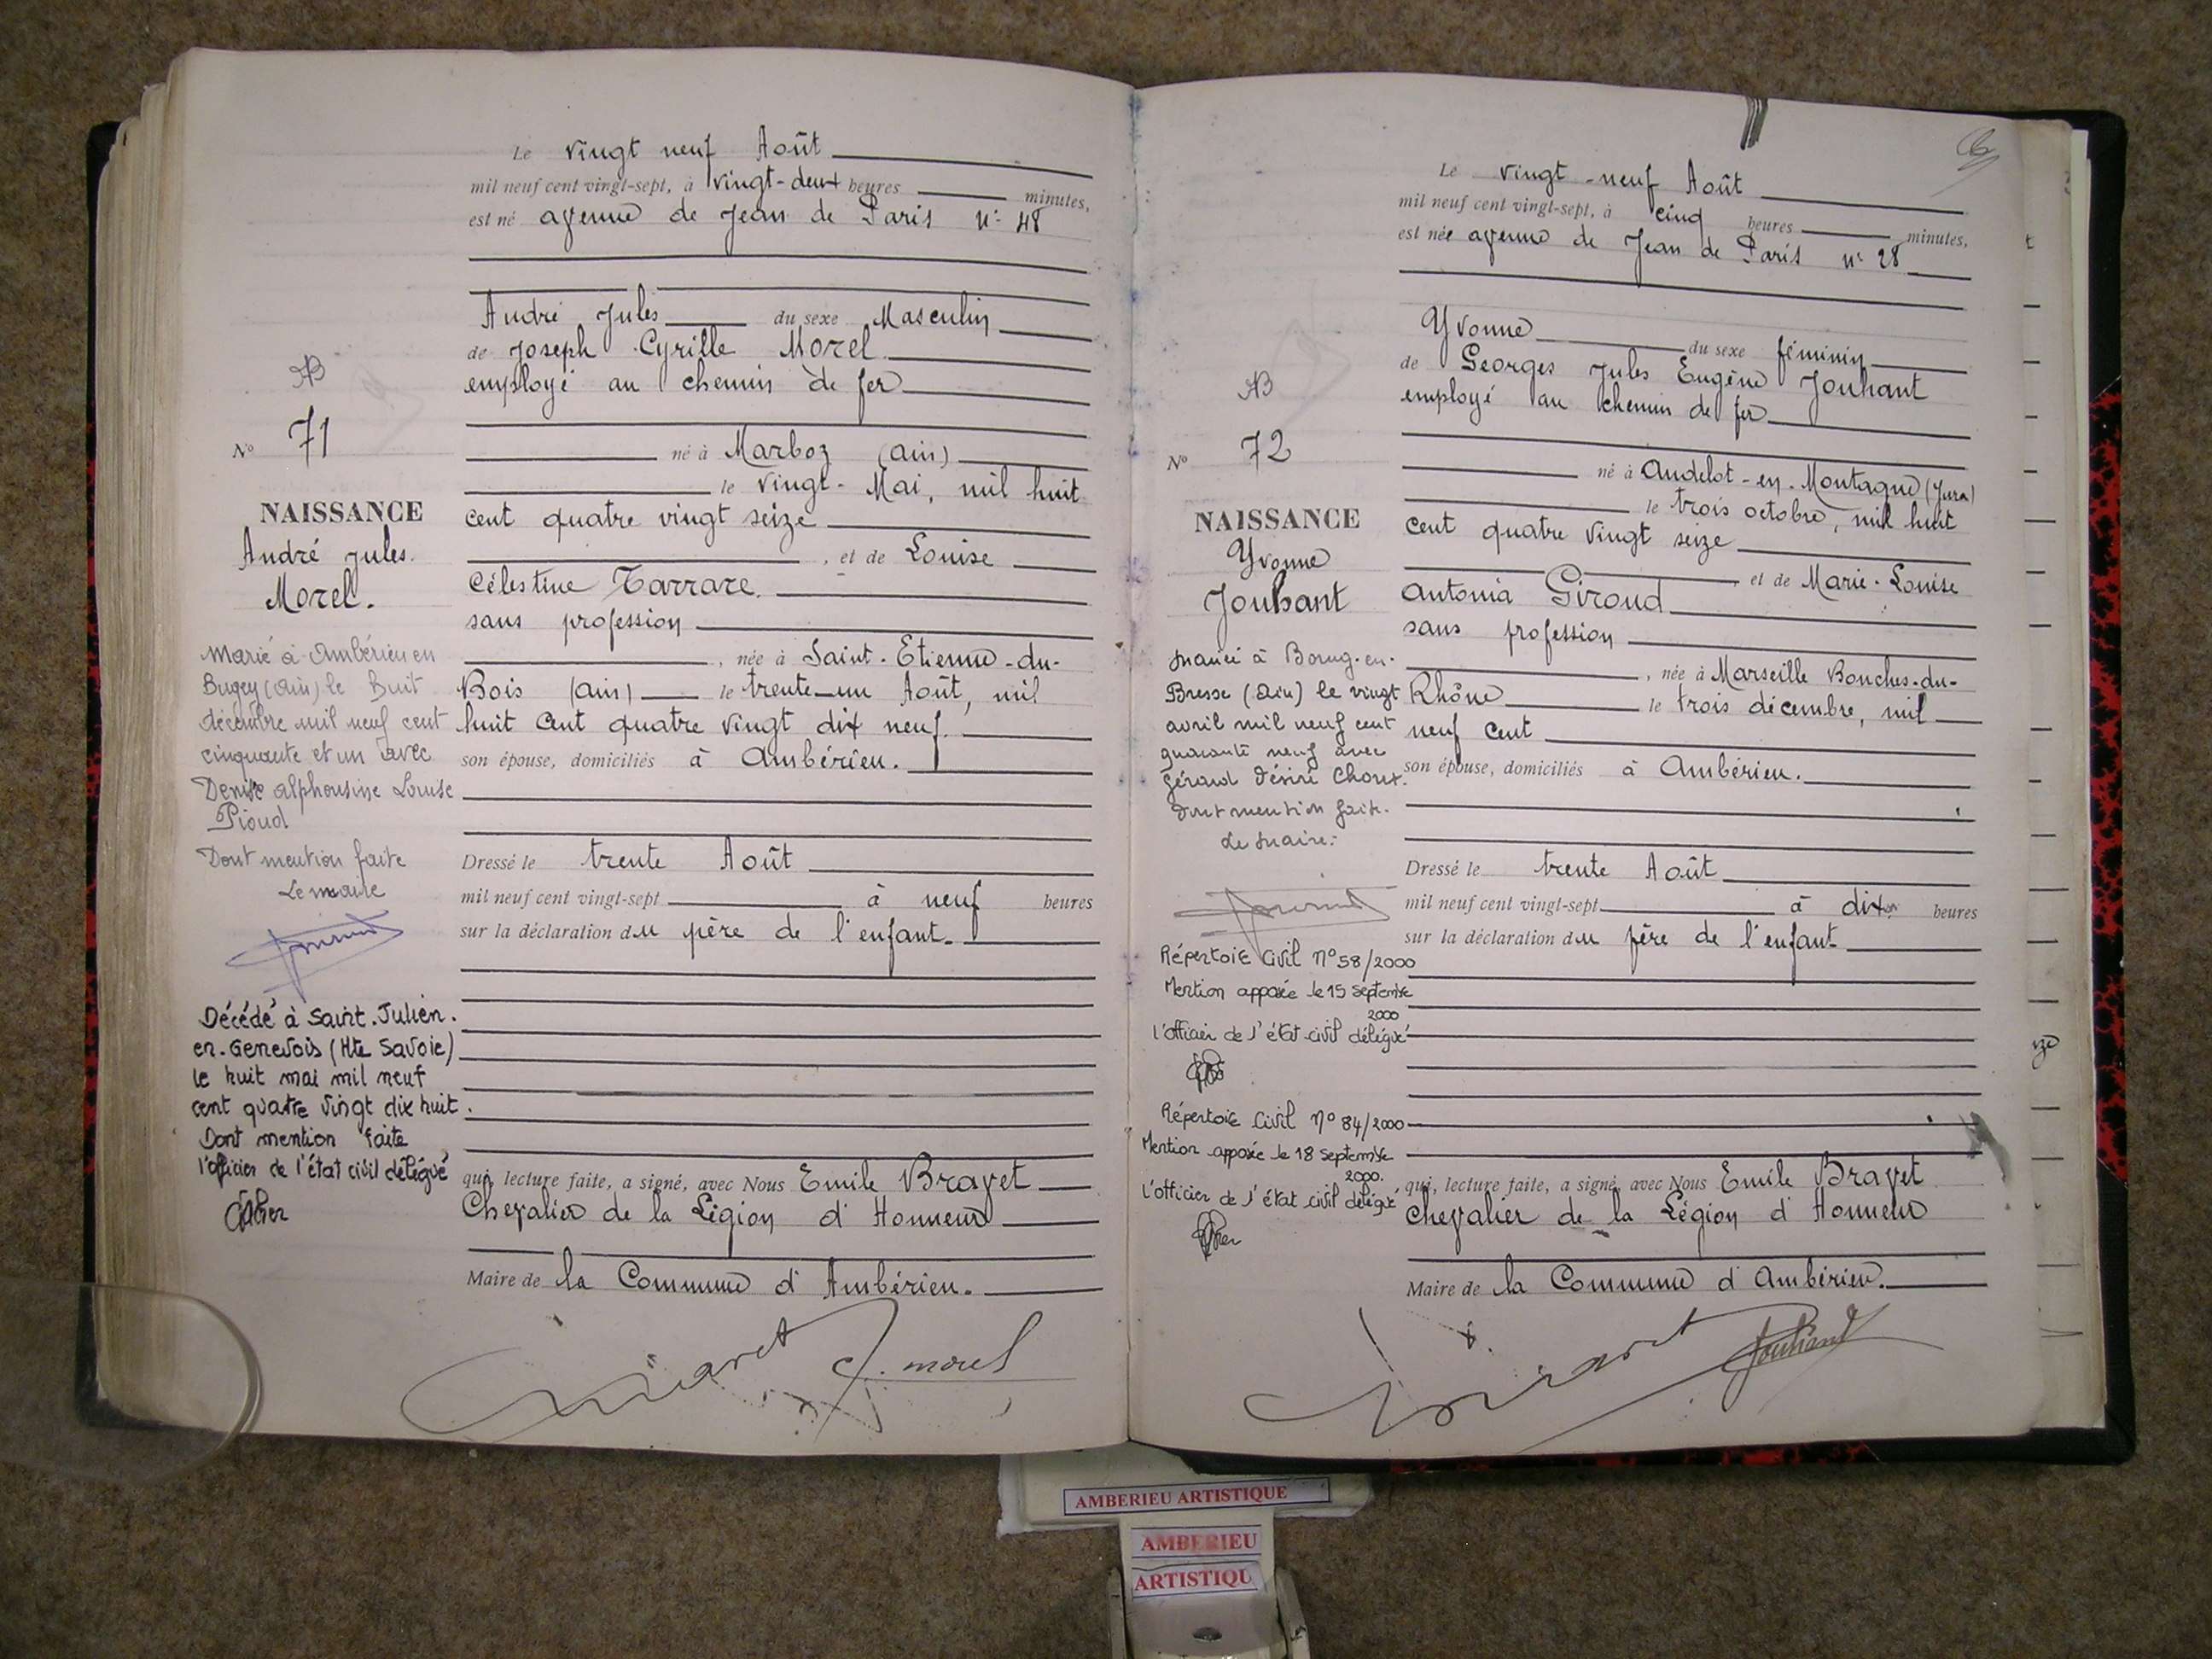 Le vingt neuf Août
mil neuf cent vingt-sept, à vingt-deux heures minutes,
est né avenue de Jean de Paris n° 48
André Jules du sexe Masculin
de Joseph Cyrille Morel
employé au chemin de fer
né à Marboz (Ain)
le vingt-Mai, mil huit
cent quatre vingt seize
, et de Louise
Célestine Tarrare.
sans profession
, née à Saint-Etienne-du-
Bois (Ain) le trente-un Août, mil
huit cent quatre vingt dix neuf.
son épouse, domiciliés à Ambérieu.
Dressé le trente Août
mil neuf cent vingt-sept à neuf heures
sur la déclaration du père de l'enfant.
qui, lecture faite, a signé, avec Nous Emile Bravet
Chevalier de la Légion d'Honneur
Maire de la Commune d'Ambérieu.
Bravet J. Morel
AB
N° 71
NAISSANCE
André Jules.
Morel.
Marié à Ambérieu en
Bugey (Ain) le huit
décembre mil neuf cent
cinquante et un avec
Denise Alphonsine Louise
Pioud
Dont mention faite
Le maire
Décédé à Saint-Julien-
en-Genevois (Hte Savoie)
le huit mai mil neuf
cent quatre vingt dix huit.
Dont mention faite
l'officier de l'état civil délégué
Le vingt-neuf Août
mil neuf cent vingt-sept, à cinq heures minutes,
est née avenue de Jean de Paris n° 28
Yvonne du sexe féminin
de Georges Jules Eugène Jouhant
employé au chemin de fer
né à Andelot-en-Montagne (Jura)
le trois octobre, mil huit
cent quatre vingt seize
et de Marie-Louise
Antonia Giroud
sans profession
, née à Marseille Bouches-du-
Rhône le trois décembre, mil
neuf cent
son épouse, domiciliés à Ambérieu.
Dressé le trente Août
mil neuf cent vingt-sept à dix heures
sur la déclaration du père de l'enfant
qui, lecture faite, a signé, avec Nous Emile Bravet
Chevalier de la Légion d'Honneur
Maire de la Commune d'Ambérieu.
Bravet Jouhant
AB
N° 72
NAISSANCE
Yvonne
Jouhant
Mariée à Bourg-en-
Bresse (Ain) le vingt
avril mil neuf cent
quarante neuf avec
Gérard Désiré Choux.
Dont mention faite.
Le Maire:
Répertoire Civil N° 58/2000
Mention apposée le 15 septembre
2000
l'officier de l'état civil délégué
Répertoire Civil N° 84/2000
Mention apposée le 18 septembre
2000.
l'officier de l'état civil délégué
AMBERIEU ARTISTIQUE
AMBERIEU
ARTISTIQU